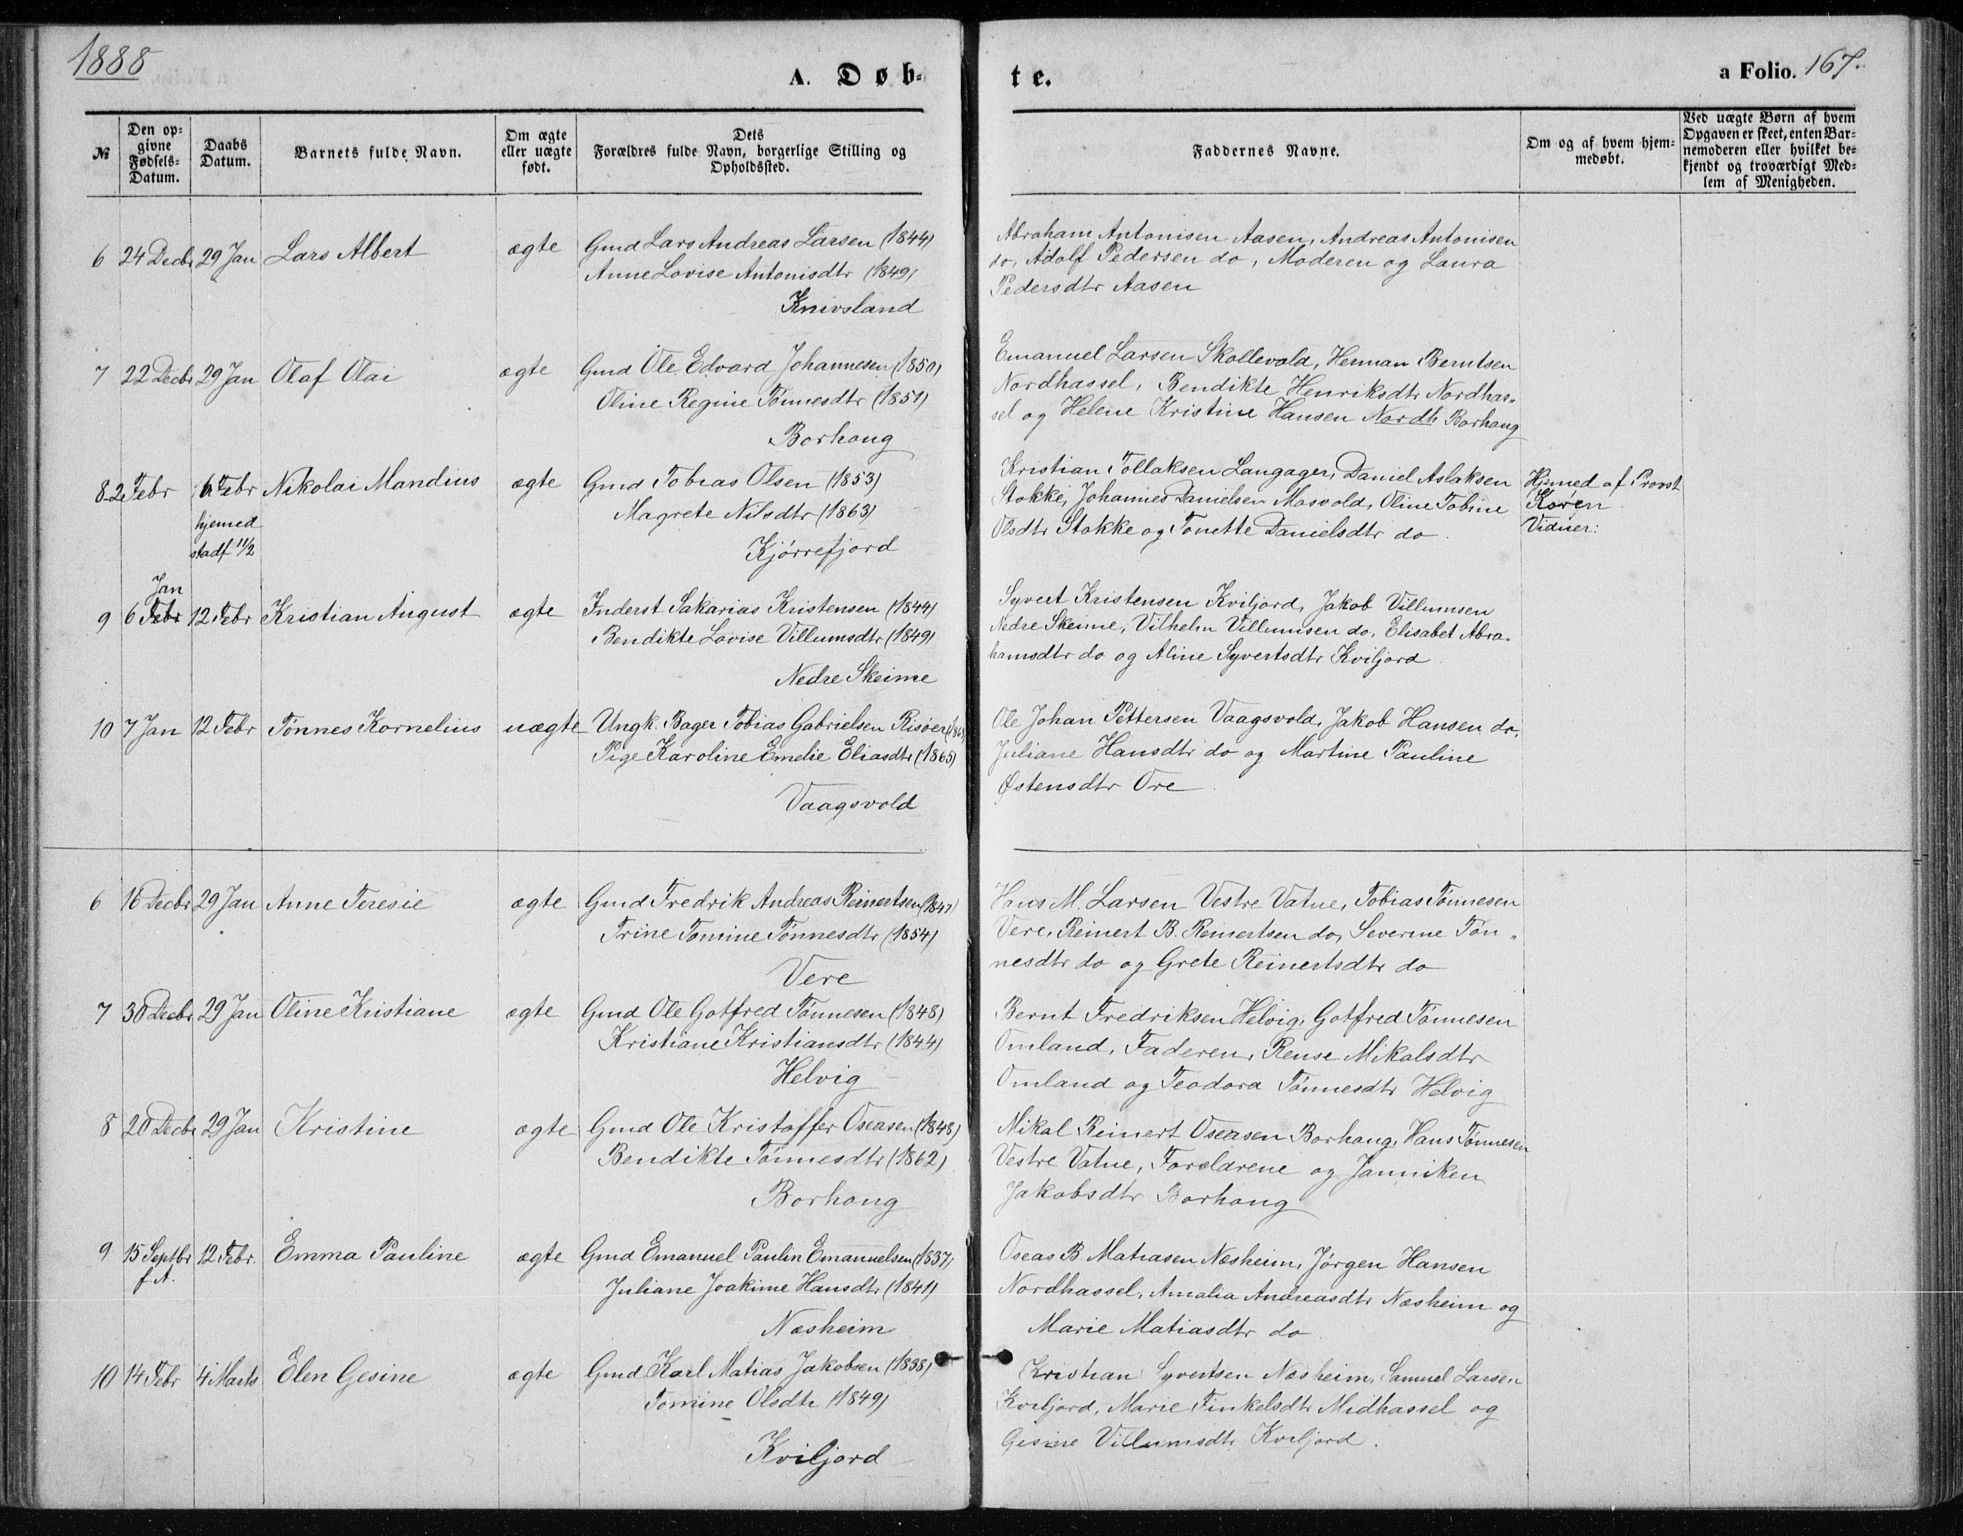 1888
A. Døb-
te.
a Folio. 167.
№
Den op-
givne
Fødsels-
Datum.
Daabs
Datum.
Barnets fulde Navn.
Om ægte
eller uægte
født.
Dets
Forældres fulde Navn, borgerlige Stilling og
Opholdssted.
Faddernes Navne.
Om og af hvem hjem-
medøbt.
Ved uægte Børn af hvem
Opgaven er skeet, enten Bar-
nemoderen eller hvilket be-
kjendt og troværdigt Med-
lem af Menigheden.
6 24 Decbr 29 Jan Lars Albert ægte Gmd Lars Andreas Larsen (1844)
Anne Lovise Antonisdtr (1849)
Knivsland
Abraham Antonisen Aasen, Andreas Antonisen
do, Adolf Pedersen do, Moderen og Laura
Pedersdtr Aasen
7 22 Decbr 29 Jan Olaf Olai ægte Gmd Ole Edvard Johannesen (1850)
Oline Regine Tønnesdtr (1851)
Borhaug
Emanuel Larsen Skollevold, Herman Berntsen
Nordhassel, Bendikte Henriksdtr Nordhas-
sel og Helene Kristine Hansen Nordh Borhaug
8 2 Febr 6 Febr Nikolai Mandius ægte Gmd Tobias Olsen (1853)
hjemed
stadf 11/2
Magrete Nilsdtr (1863)
Kjørrefjord
Kristian Tollaksen Langager, Daniel Aslaksen
Stokke, Johannes Danielsen Mosvold, Oline Tobine
Olsdtr Stokke og Tonette Danielsdtr do.
Hjemed af Provst
Koren
Vidner:
Jan
9 6 Febr 12 Febr Kristian August ægte Inderst Sakarias Kristensen (1844)
Bendikte Lovise Villumsdtr (1849)
Nedre Skeime
Syvert Kristensen Kviljord, Jakob Villumsen
Nedre Skeime, Vilhelm Villumsen do, Elisabet Abra-
hamsdtr do og Aline Syvertsdtr Kviljord
10 7 Jan 12 Febr Tønnes Kornelius uægte Ungk. Bager Tobias Gabrielsen Risøen
Pige Karoline Emelie Eliasdtr (1865)
Vaagsvold
Ole Johan Pettersen Vaagsvold, Jakob Hansen do,
Juliane Hansdtr do og Martine Pauline
Østensdtr Ore
6 16 Decbr 29 Jan Anne Teresie ægte Gmd Fredrik Andreas Reinertsen (1847)
Trine Tomine Tønnesdtr (1854)
Vere
Hans M. Larsen Vestre Vatne, Tobias Tønnesen
Vere, Reinert B. Reinertsen do, Severine Tøn-
nesdtr do og Grete Reinertsdtr do
7 30 Decbr 29 Jan Oline Kristiane ægte Gmd Ole Gotfred Tønnesen (1848)
Kristiane Kristiansdtr (1844)
Helvig
Bernt Fredriksen Helvig, Gotfred Tønnesen
Omland, Faderen, Rense Mikalsdtr
Omland og Teodora Tønnesdtr Helvig
8 20 Decbr 29 Jan Kristine ægte Gmd Ole Kristoffer Oseasen (1848)
Bendikte Tønnesdtr (1862)
Borhaug
Mikal Reinert Oseasen Borhaug, Hans Tønnesen
Vestre Vatne, Forældrene og Janniken
Jakobsdtr Borhaug
9 15 Septbr 12 Febr. Emma Pauline ægte Gmd Emanuel Paulin Emanuelsen (1837)
f. A.
Juliane Joakime Hansdtr (1841)
Næsheim
Oseas B Matiasen Næsheim, Jørgen Hansen
Nordhassel, Amalia Andreasdtr Næsheim og
Marie Matiasdtr do
10 14 Febr 4 Marts Elen Gesine ægte Gmd Karl Matias Jakobsen (1838)
Tomine Olsdtr (1849)
Kviljord
Kristian Syvertsen Næsheim, Samuel Larsen
Kviljord, Marie Finkelsdtr Midhassel og
Gesine Villumsdtr Kviljord.